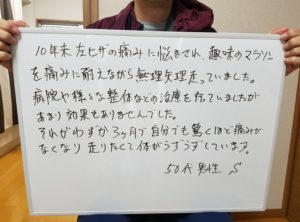 10年来左ヒザの痛みに悩まされ、趣味のマラソン
を痛みに耐えながら無理矢理走っていました。
病院や様々な整体などの治療を行っていましたが
あまり効果もありませんでした。
それがわずか3ヶ月で自分でも驚くほど痛みが
なくなり走りたくて体がうずうずしています。
50代男性 S